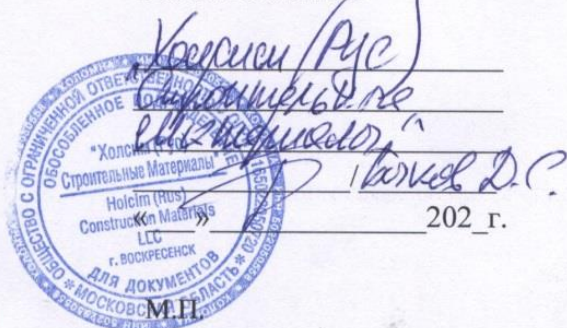 Холсим (Рус)
Строительные
материалы"
Д.С.
« » 202_г.
М.П.
ОБЩЕСТВО С ОГРАНИЧЕННОЙ ОТВЕТСТВЕННОСТЬЮ
ОБОСОБЛЕННОЕ ПОДРАЗДЕЛЕНИЕ
"Холсим (Рус)
Строительные Материалы"
Holcim (Rus)
Construction Materials
LLC
г. ВОСКРЕСЕНСК
ДЛЯ ДОКУМЕНТОВ
* МОСКОВСКАЯ ОБЛАСТЬ *